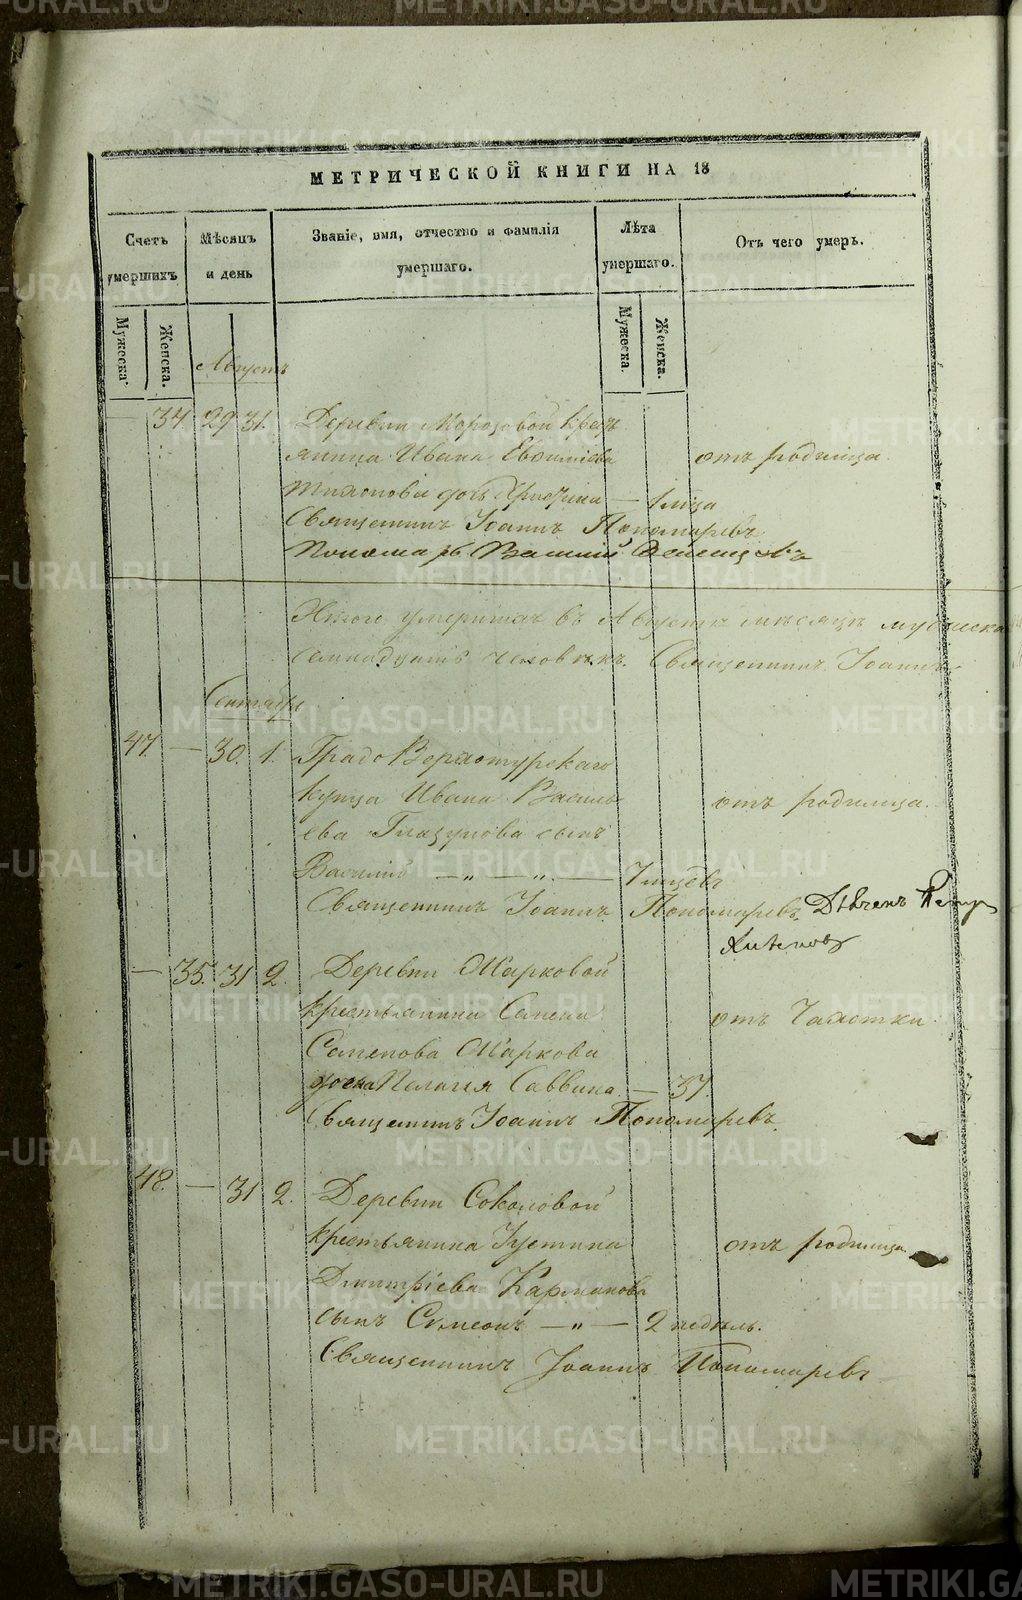 МЕТРИЧЕСКОЙ КНИГИ НА 18
Счетъ умершихъ
Мѣсяцъ и день
Званіе, имя, отчество и фамилія умершаго.
Лѣта умершаго.
Отъ чего умеръ.
Мужеска.
Женска.
Мужеска.
Женска.
Августъ
— 34. 29 31. Деревни Морозовой Крестъ
янина Ивана Евфиміева отъ родимца.
Тихонова дочь — 1 м̃ца
Священникъ Іоаннъ Пономаревъ
Пономарь
Итого умершихъ въ Августѣ мѣсяцѣ мужеска
семнадцать человѣкъ. Священникъ Іоаннъ
Сентябрь
47. — 30. 1. Градо Верхотурскаго
купца Ивана Василь отъ родимца.
ева Глазунова сынъ
Василій — „ — „ — 7 м̃цевъ
Священникъ Іоаннъ Пономаревъ. Дьяченъ Петръ
— 35. 31 2. Деревни Марковой
крестьянина отъ Чахотки.
Семенова Маркова
жена Пелагія Саввина — 37.
Священникъ Іоаннъ Пономаревъ.
48. — 31 2. Деревни Соколовой
крестьянина Іустина отъ родимца.
Димитріева Карманова
сынъ Симеонъ — „ — 2 недѣль.
Священникъ Іоаннъ Пономаревъ
METRIKI.GASO-URAL.RU